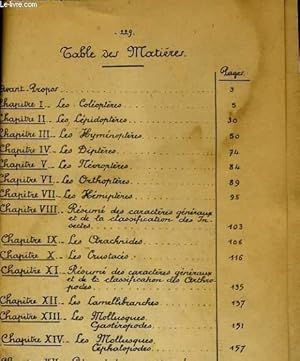 Le-livre.com
_ 229_
Table des Matières.
Pages.
Avant-Propos 3
Chapitre I _ Les Coléoptères 5
Chapitre II _ Les Lépidoptères 30
Chapitre III _ Les Hyménoptères 50
Chapitre IV _ Les Diptères 74
Chapitre V _ Les Névroptères 84
Chapitre VI _ Les Orthoptères 89
Chapitre VII _ Les Hémiptères 95
Chapitre VIII _ Résumé des caractères généraux
et de la classification des In-
sectes 103
Chapitre IX _ Les Arachnides 106
Chapitre X _ Les Crustacés 116
Chapitre XI _ Résumé des caractères généraux
et de la classification des Arthro-
podes 135
Chapitre XII _ Les Lamellibranches
Chapitre XIII _ Les Mollusques
Gastéropodes
Chapitre XIV _ Les Mollusques
Céphalopodes 157